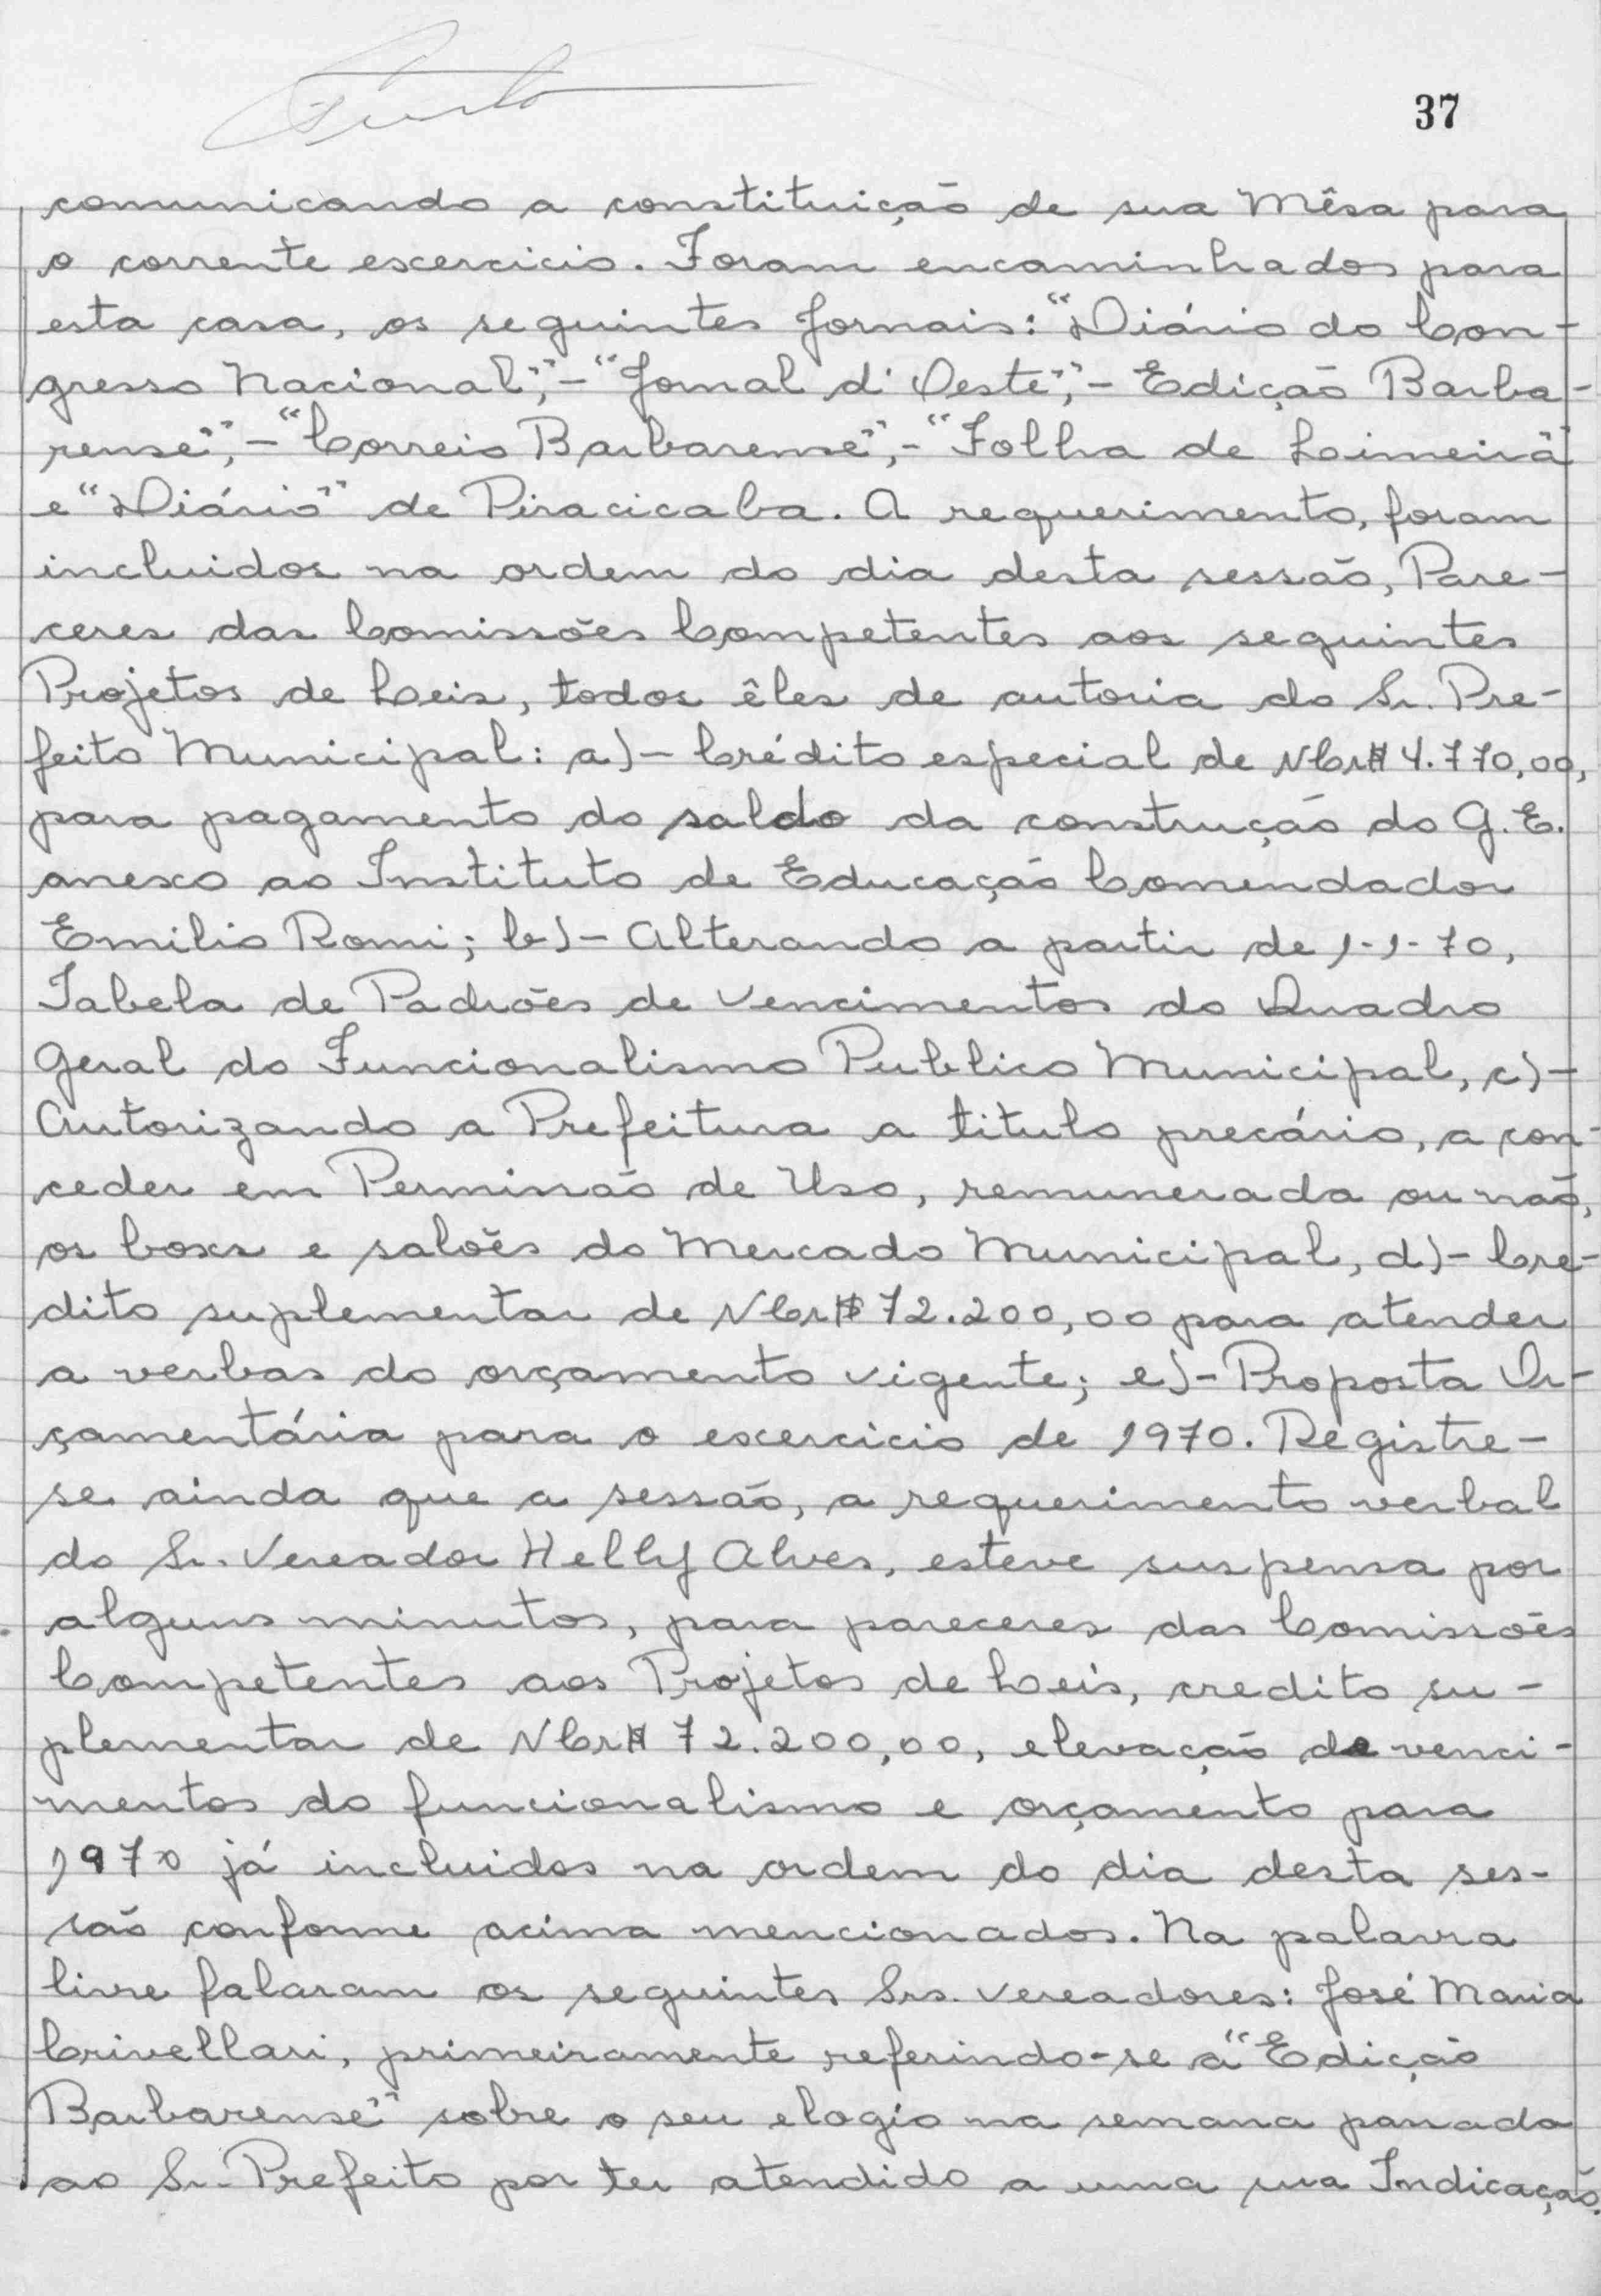 37
comunicando a constituição de sua Mêsa para
o corrente escercicio. Foram encaminhados para
esta casa, os seguintes Jornais: "Diário do Con-
gresso Nacional", - "Jornal d'Oeste", - Edição Barba-
rense", - "Correio Barbarense", - "Folha de Limeira"
e "Diário" de Piracicaba. A requerimento, foram
incluidos na ordem do dia desta sessão, Pare-
ceres das Comissões Competentes aos seguintes
Projetos de Leis, todos êles de autoria do Sr. Pre-
feito Municipal: a) - Crédito especial de NCr$ 4.770,00,
para pagamento do saldo da construção do G.E.
anexo ao Instituto de Educação Comendador
Emilio Romi; b) - Alterando a partir de 1-1-70,
Tabela de Padrões de Vencimentos do Quadro
Geral do Funcionalismo Publico Municipal, c) -
Autorizando a Prefeitura a titulo precário, a con-
ceder em Permissão de Uso, remunerada ou não,
os boxes e salões do Mercado Municipal, d) - Cre-
dito suplementar de NCr$ 72.200,00 para atender
a verbas do orçamento vigente; e) - Proposta Or-
çamentária para o escercicio de 1970. Registre-
se ainda que a sessão, a requerimento verbal
do Sr. Vereador Helly Alves, esteve suspensa por
alguns minutos, para pareceres das Comissões
Competentes aos Projetos de Leis, credito su-
plementar de NCr$ 72.200,00, elevação de venci-
mentos do funcionalismo e orçamento para
1970 já incluidos na ordem do dia desta ses-
são conforme acima mencionados. Na palavra
livre falaram os seguintes Srs. Vereadores: José Maria
Crivellari, primeiramente referindo-se a "Edição
Barbarense" sobre o seu elogio na semana passada
ao Sr. Prefeito por ter atendido a uma sua Indicação.